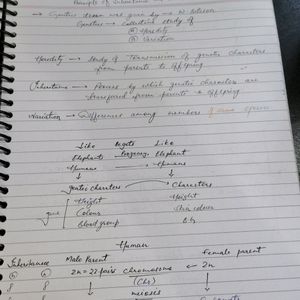 Principle of Inheritance
→ Genetics term was given by → W. Bateson
Genetics → Collective study of
Heredity
Variation
Heredity → Study of Transmission of genetic characters
from parents to offspring
Inheritance → Process by which genetic characters are
transferred from parents to offspring
Variation → Differences among members of same species
Like begets Like
Elephants Progeny Elephant
Humans → Humans
genetic characters → Characters
Height Height
Colour Skin colour
Blood group B.G
gene
Human
Inheritance Male Parent Female parent
2n = 22 pairs chromosome ← 2n
meiosis